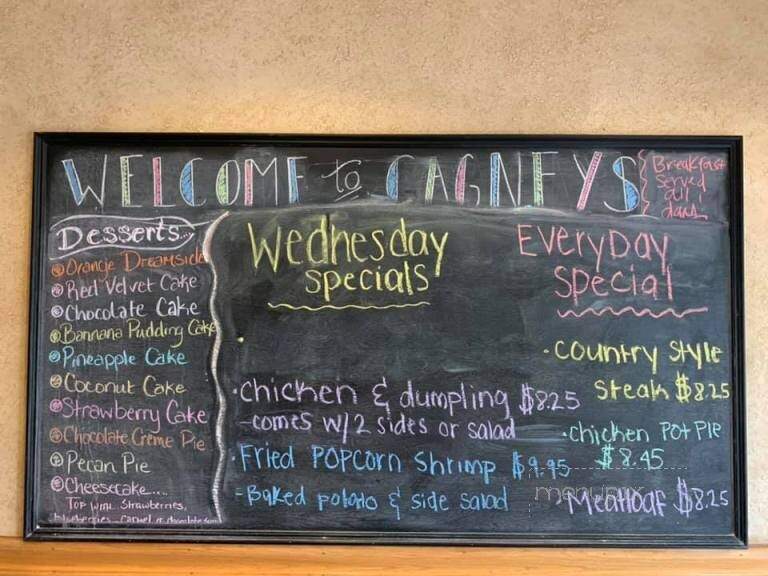 WELCOME to CAGNEYS
Breakfast
Served
all
day
Desserts
Orange Dreamsicle
Red Velvet Cake
Chocolate Cake
Bannana Pudding Cake
Pineapple Cake
Coconut Cake
Strawberry Cake
Chocolate Creme Pie
Pecan Pie
Cheesecake....
Top with Strawberries,
blueberries, Carmel or chocolate
Wednesday
Specials
• Chicken & dumpling $8.25
- comes w/2 sides or salad
• Fried Popcorn Shrimp $9.95
- Baked potato & side salad
EVERYDAY
Special
• Country Style
Steak $8.25
• chicken Pot Pie
$8.45
• Meatloaf $8.25
menupix